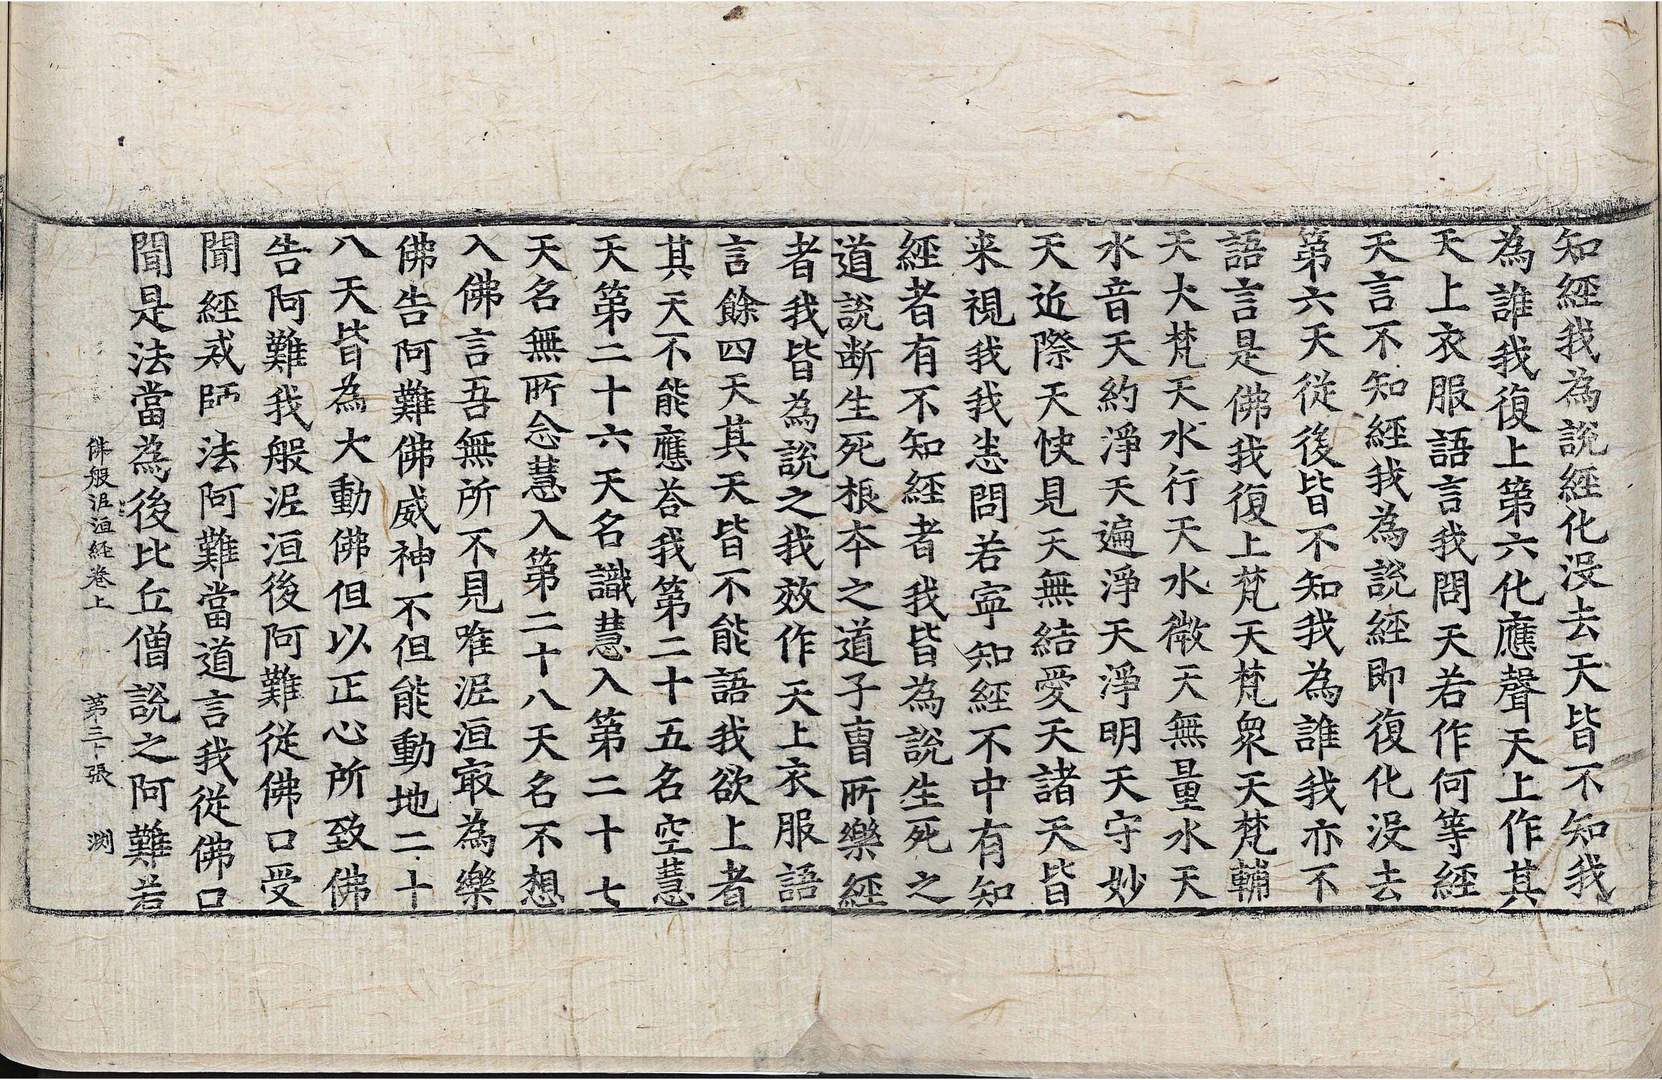 知經我為說經化沒去天皆不知我
為誰我復上第六化應聲天上作其
天上衣服語言我問天若作何等經
天言不知經我為說經即復化沒去
第六天從後皆不知我為誰我亦不
語言是佛我復上梵天梵眾天梵輔
天大梵天水行天水微天無量水天
水音天約淨天遍淨天淨明天守妙
天近際天快見天無結愛天諸天皆
来視我我悉問若寧知經不中有知
經者有不知經者我皆為說生死之
道說断生死根本之道子曺所樂經
者我皆為說之我效作天上衣服語
言餘四天其天皆不能語我欲上者
其天不能應荅我第二十五名空慧
天第二十六天名識慧入第二十七
天名無所念慧入第二十八天名不想
入佛言吾無所不見唯泥洹㝡為樂
佛告阿難佛威神不但能動地二十
八天皆為大動佛但以正心所致佛
告阿難我般泥洹後阿難從佛口受
聞經戒師法阿難當道言我從佛口
聞是法當為後比丘僧說之阿難若
佛般泥洹經卷上 第三十張 渕